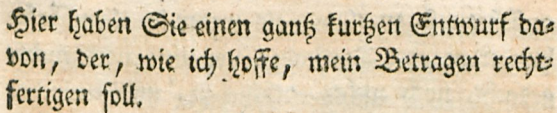 Hier haben Sie einen gantz kurtzen Entwurf da⸗
von, der, wie ich hoffe, mein Betragen recht⸗
fertigen soll.